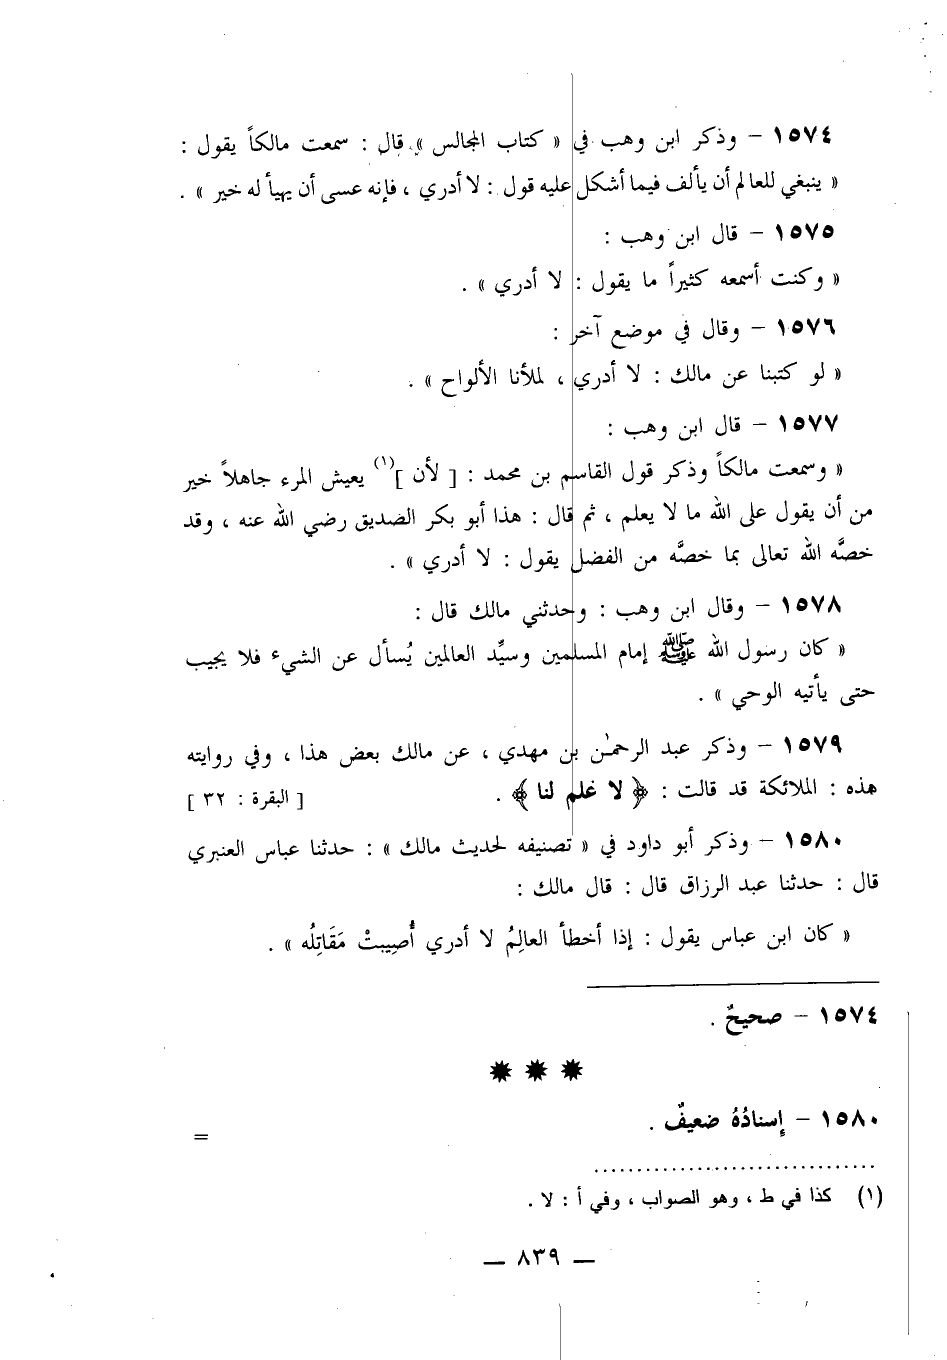 ١٥٧٤ – وذكر ابن وهب في « كتاب المجالس » قال : سمعت مالكاً يقول :
« ينبغي للعالم أن يألف فيما أشكل عليه قول : لا أدري ، فإنه عسى أن يهيأ له خير » .
١٥٧٥ – قال ابن وهب :
« وكنت أسمعه كثيراً ما يقول : لا أدري » .
١٥٧٦ – وقال في موضع آخر :
« لو كتبنا عن مالك : لا أدري ، لملأنا الألواح » .
١٥٧٧ – قال ابن وهب :
« وسمعت مالكاً وذكر قول القاسم بن محمد : [ لأن ](١) يعيش المرء جاهلاً خير
من أن يقول على الله ما لا يعلم ، ثم قال : هذا أبو بكر الصديق رضي الله عنه ، وقد
خصَّه الله تعالى بما خصَّه من الفضل يقول : لا أدري » .
١٥٧٨ – وقال ابن وهب : وحدثني مالك قال :
« كان رسول الله ﷺ إمام المسلمين وسيِّد العالمين يُسأل عن الشيء فلا يجيب
حتى يأتيه الوحي » .
١٥٧٩ – وذكر عبد الرحمٰن بن مهدي ، عن مالك بعض هذا ، وفي روايته
هذه : الملائكة قد قالت : ﴿ لا علم لنا ﴾ . [ البقرة : ٣٢ ]
١٥٨٠ – وذكر أبو داود في « تصنيفه لحديث مالك » : حدثنا عباس العنبري
قال : حدثنا عبد الرزاق قال : قال مالك :
« كان ابن عباس يقول : إذا أخطأ العالِمُ لا أدري أُصِيبتْ مَقَاتِلُه » .
١٥٧٤ – صحيحٌ .
١٥٨٠ – إسنادُهُ ضعيفٌ .
=
(١) كذا في ط ، وهو الصواب ، وفي أ : لا .
— ٨٣٩ —